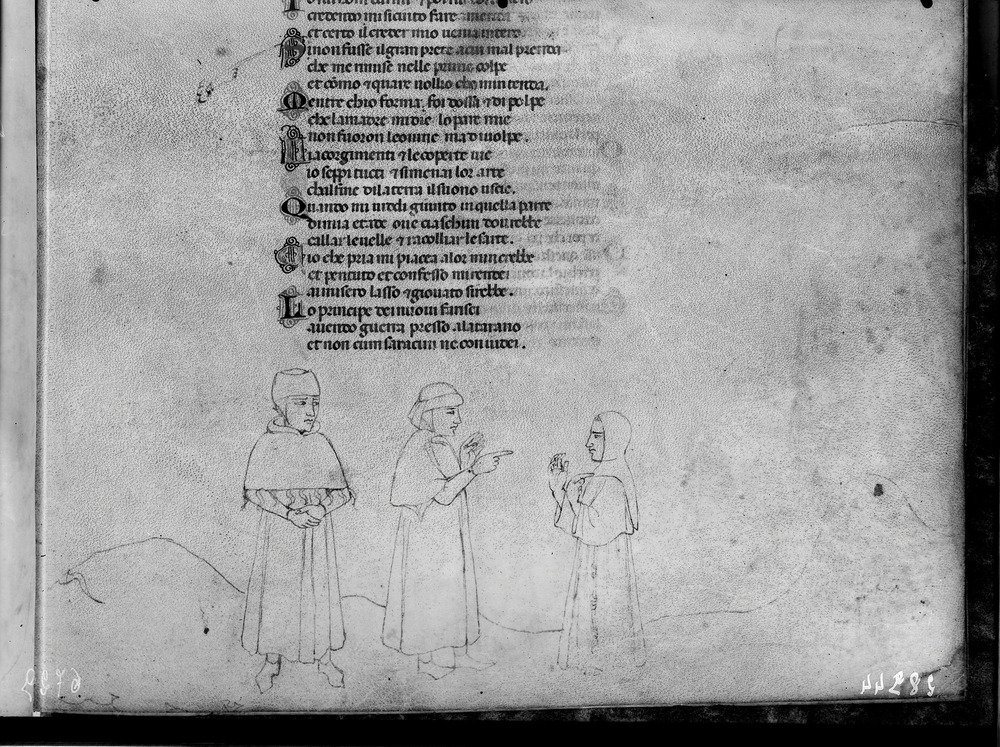 credendo mi si cinto fare amenda
et certo il creder mio uenia intero
Se non fusse il gran prete a cui mal prenda
che me rimise nelle prime colpe
et cōmo ⁊ quare uollio che mintenda.
Mentre chio forma foi dossa ⁊ di polpe
che la madre mi die lopere mie
non fuoron leonine ma di uolpe.
Li acorgimenti ⁊ le coperte uie
io seppi tucti ⁊ si menai lor arte
chal fine di la terra il suono uscie.
Quando mi uidi giunto in quella parte
di mia etade oue ciaschun dourebbe
callar le uelle ⁊ racolliar le sarte.
Cio che pria mi piacea alor mincrebbe
et pentuto et confesso mi rendei
ai misero lasso ⁊ giouato sirebbe.
Lo principe dei nuoui farisei
auendo guerra presso a laterano
et non cum saracin ne con iudei.
6729
44282